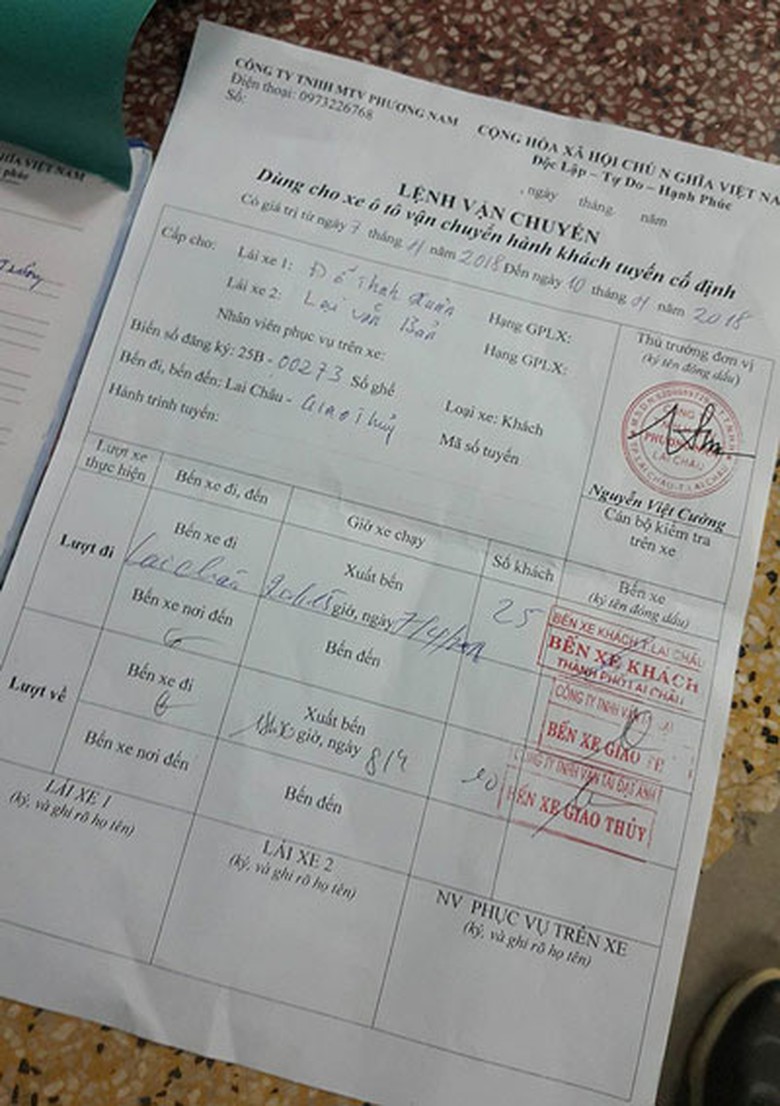 CÔNG TY TNHH MTV PHƯƠNG NAM
Điện thoại: 0973226768
Số:
CỘNG HÒA XÃ HỘI CHỦ N GHĨA VIỆT NA
Độc Lập – Tự Do – Hạnh Phúc
, ngày tháng. năm
LỆNH VẬN CHUYỂN
Dùng cho xe ô tô vận chuyển hành khách tuyến cố định
Có giá trị từ ngày 7 tháng năm 2018 Đến ngày 10 tháng năm 2018
Cấp cho:
Lái xe 1: Đỗ Thanh Xuân
Hạng GPLX:
Lái xe 2: Lại Văn Bản
Hạng GPLX:
Nhân viên phục vụ trên xe:
Biển số đăng ký: 25B - 00273 Số ghế
Loại xe: Khách
Bến đi, bến đến: Lai Châu - Giao Thủy
Mã số tuyến
Hành trình tuyến:
Thủ trưởng đơn vị
(ký tên đóng dấu)
PHƯƠNG NAM
LAI CHÂU
Nguyễn Việt Cường
Cán bộ kiểm tra
trên xe
Lượt xe
thực hiện
Bến xe đi, đến
Giờ xe chạy
Số khách
Bến xe
(ký tên đóng dấu)
Lượt đi
Bến xe đi
Lai Châu
Xuất bến
giờ, ngày
25
BẾN XE KHÁCH T. LAI CHÂU
BẾN XE KHÁCH
THÀNH PHỐ LAI CHÂU
Bến xe nơi đến
Bến đến
CÔNG TY TNHH VẬN
BẾN XE GIAO
Lượt về
Bến xe đi
Xuất bến
giờ, ngày 8/4
CÔNG TY TNHH VẬN TẢI ĐẠI ANH
BẾN XE GIAO THỦY
Bến xe nơi đến
Bến đến
LÁI XE 1
(ký, và ghi rõ họ tên)
LÁI XE 2
(ký, và ghi rõ họ tên)
NV PHỤC VỤ TRÊN XE
(ký, và ghi rõ họ tên)